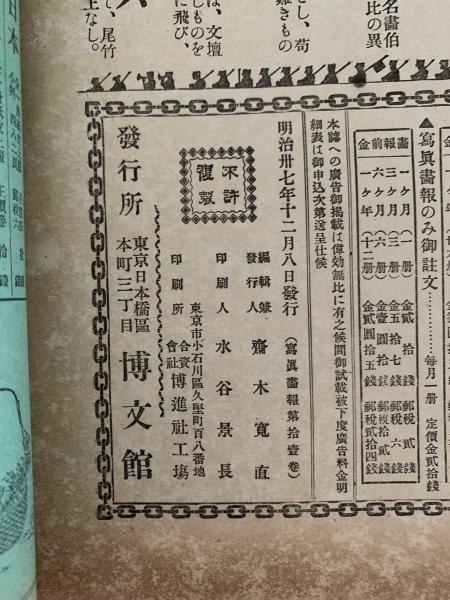 名畫伯
比の異
とし、苟
難きもの
は、文壇
しものを
に飛び、
て、尾竹
上なし。
日本
▲寫眞畫報のみ御註文…………毎月一册 定價金貳拾錢
畫報前金
一ヶ月(一册) 金貳拾錢 郵稅貳錢
三ヶ月(三册) 金五拾七錢 郵稅六錢
六ヶ月(六册) 金壹圓拾錢 郵稅拾貳錢
一ヶ年(十二册) 金貳圓拾五錢 郵稅貳拾四錢
本誌への廣告御掲載は偉効無比に有之候間御試載被下度廣告料金明
細表は御申込次第送呈仕候
明治卅七年十二月八日發行 (寫眞畫報第拾壹卷)
不許複製
編輯兼發行人 齋木寬直
印刷人 水谷景長
東京市小石川區久堅町百八番地
印刷所 合資會社 博進社工場
發行所 東京日本橋區本町三丁目 博文館